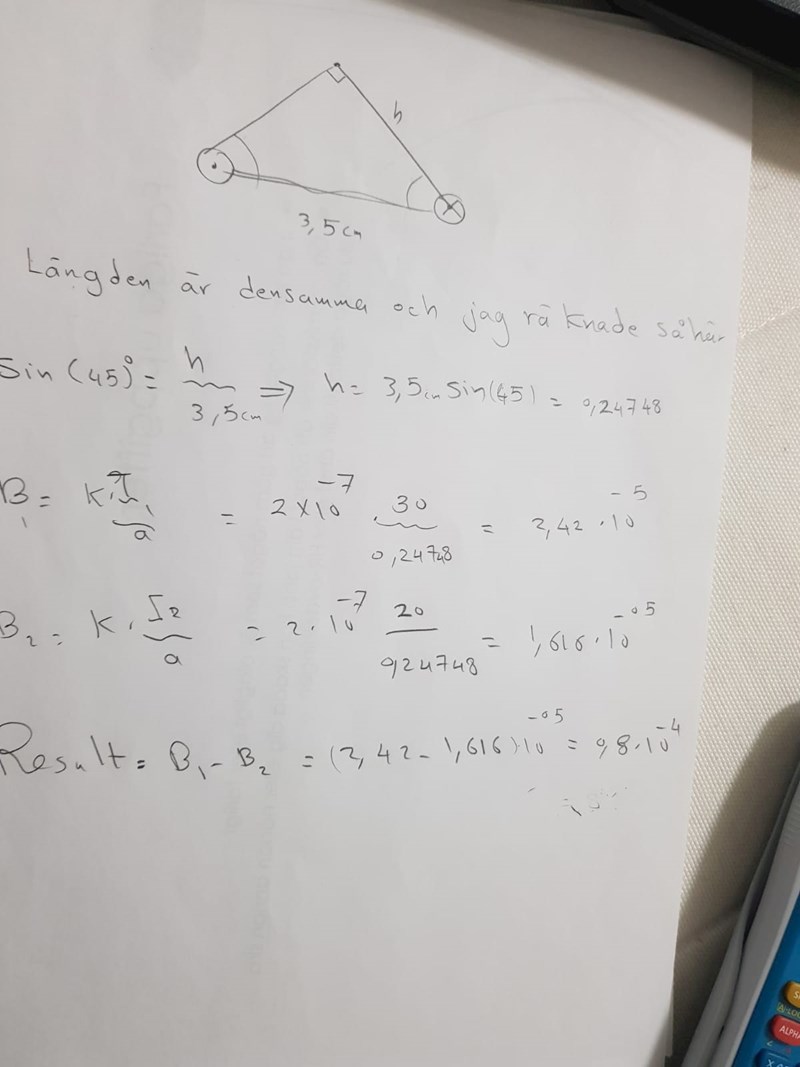 h
3,5cm
Längden är densamma och jag räknade såhär
Sin(45)° = h / 3,5cm ⇒ h = 3,5cm sin(45) = 0,24748
B₁ = K·I₁ / a = 2×10⁻⁷ · 30 / 0,24748 = 2,42·10⁻⁵
B₂ = K·I₂ / a = 2·10⁻⁷ 20 / 0,24748 = 1,616·10⁻⁰⁵
Result = B₁ - B₂ = (2,42 - 1,616)·10⁻⁰⁵ = 0,8·10⁻⁴
ALPHA